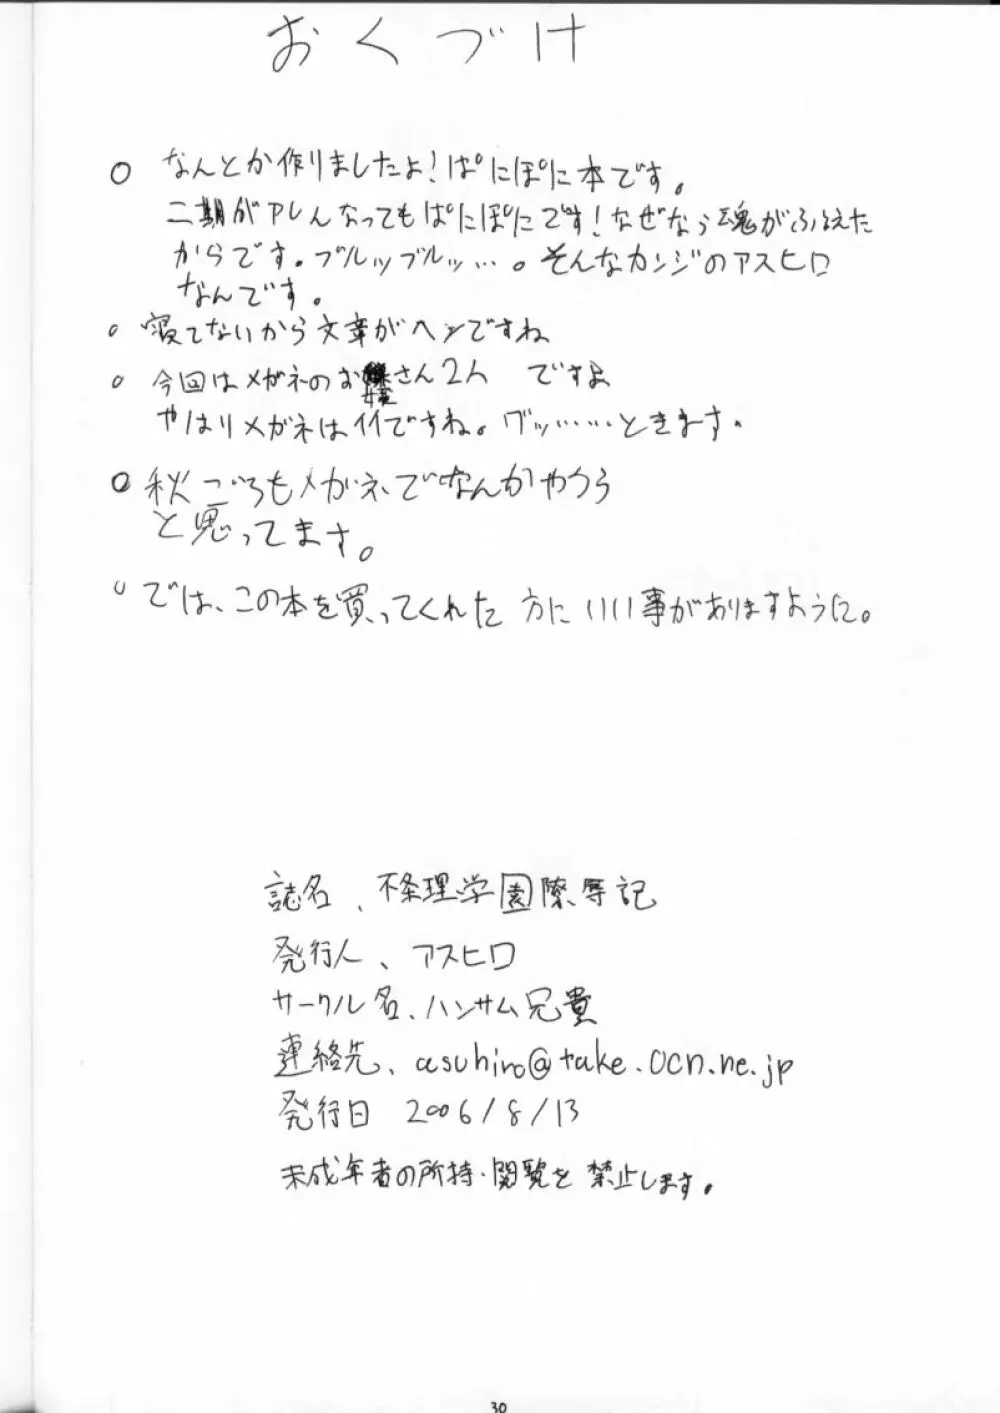 おくづけ
○ なんとか作りましたよ！ぱにぽに本です。
二期がアレんなってもぱにぽにです！なぜなら魂がふるえた
からです。ブルッブルッ…。そんなカンジのアスヒロ
なんです。
○ 寝てないから文章がヘンですね
○ 今回はメガネのお嬢さん2人 ですよ
やはりメガネはイイですね。グッ……ときます。
○ 秋ごろもメガネでなんかやろう
と思ってます。
○ では、この本を買ってくれた方にいい事がありますように。
誌名、不条理学園陵辱記
発行人、アスヒロ
サークル名、ハンサム兄貴
連絡先、asuhiro@take.ocn.ne.jp
発行日 2006/8/13
未成年者の所持・閲覧を禁止します。
30